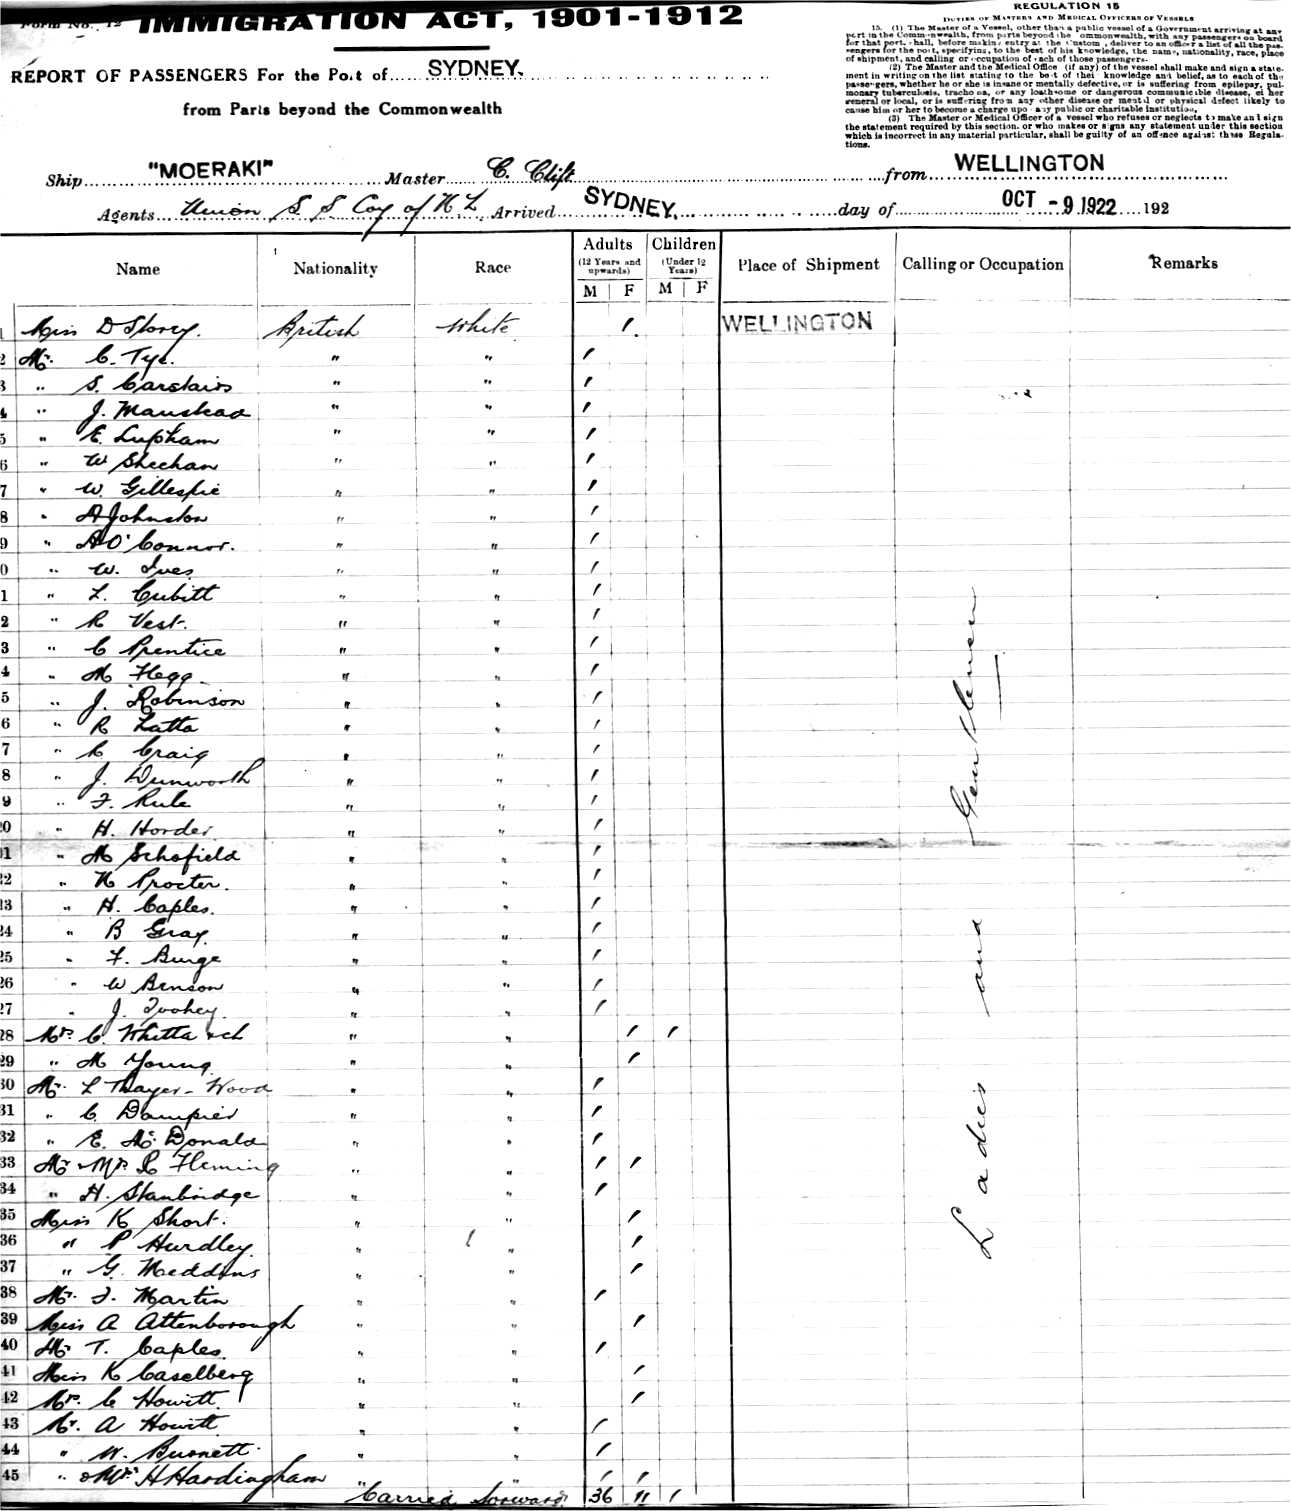 Form No. 12
IMMIGRATION ACT, 1901-1912
REPORT OF PASSENGERS For the Port of SYDNEY.
from Parts beyond the Commonwealth
REGULATION 15
DUTIES OF MASTERS AND MEDICAL OFFICERS OF VESSELS
15. (1) The Master of a Vessel, other than a public vessel of a Government arriving at any
port in the Commonwealth, from parts beyond the Commonwealth, with any passengers on board
for that port, shall, before making entry at the Customs, deliver to an officer a list of all the pas-
sengers for the port, specifying, to the best of his knowledge, the name, nationality, race, place
of shipment, and calling or occupation of each of those passengers.
(2) The Master and the Medical Office (if any) of the vessel shall make and sign a state-
ment in writing on the list stating to the best of their knowledge and belief, as to each of the
passengers, whether he or she is insane or mentally defective, or is suffering from epilepsy, pul-
monary tuberculosis, trachoma, or any loathsome or dangerous communicable disease, either
general or local, or is suffering from any other disease or mental or physical defect likely to
cause him or her to become a charge upon any public or charitable institution.
(3) The Master or Medical Officer of a vessel who refuses or neglects to make and sign
the statement required by this section, or who makes or signs any statement under this section
which is incorrect in any material particular, shall be guilty of an offence against these Regula-
tions.
Ship "MOERAKI" Master C. Clift from WELLINGTON
Agents Union S S Coy of N Z. Arrived SYDNEY. day of OCT -9 1922 192
Name Nationality Race Adults (12 Years and upwards) M F Children (Under 12 Years) M F Place of Shipment Calling or Occupation Remarks
1 Miss D Storey. British White ' WELLINGTON
2 Mr. C. Tye. " " '
3 " S. Carstairs " " '
4 " J. Manstead " " '
5 " E. Lupham " " '
6 " W Sheehan " " '
7 " W. Gillespie " " '
8 " A Johnston " " '
9 " A O'Connor. " " '
0 " W. Ives " " '
1 " L. Cubitt " " '
2 " R Vest. " " '
3 " C Prentice " " '
4 " M Flegg. " " '
5 " J. Robinson " " '
6 " R Latta " " '
7 " C Craig " " '
8 " J. Dunworth " " '
9 " F. Rule " " '
20 " H. Horder. " " '
21 " M Schofield " " '
22 " N Procter. " " '
23 " H. Caples. " " '
24 " B Gray. " " '
25 " F. Burge " " '
26 " W Benson " " '
27 " J. Toohey. " " '
28 Mrs. C. Whitta & ch " " ' '
29 " M Young " " '
30 Mr. L Thayer-Wood " " '
31 " C. Dampier " " '
32 " E. McDonald " " '
33 Mr & Mrs. Fleming " " ' '
34 " H. Stanbridge " " '
35 Miss K Short. " " '
36 " P Hurdley. " " '
37 " G. Meddins " " '
38 Mr. F. Martin " " '
39 Miss A Attenborough " " '
40 Mr T. Caples. " " '
41 Miss K Caselberg " " '
42 Mrs. C Howitt. " " '
43 Mr. A Howitt " " '
44 " W. Burnett. " " '
45 " & Mrs H Hardingham " " ' '
Carried forward 36 11 1
Ladies and Gentlemen